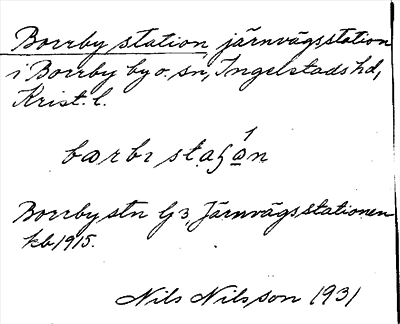 Borrby station järnvägsstation
i Borrby by o. sn, Ingelstads hd,
Krist. l.
Borrby stn G 3, Järnvägsstationen
kb 1915.
Nils Nilsson 1931